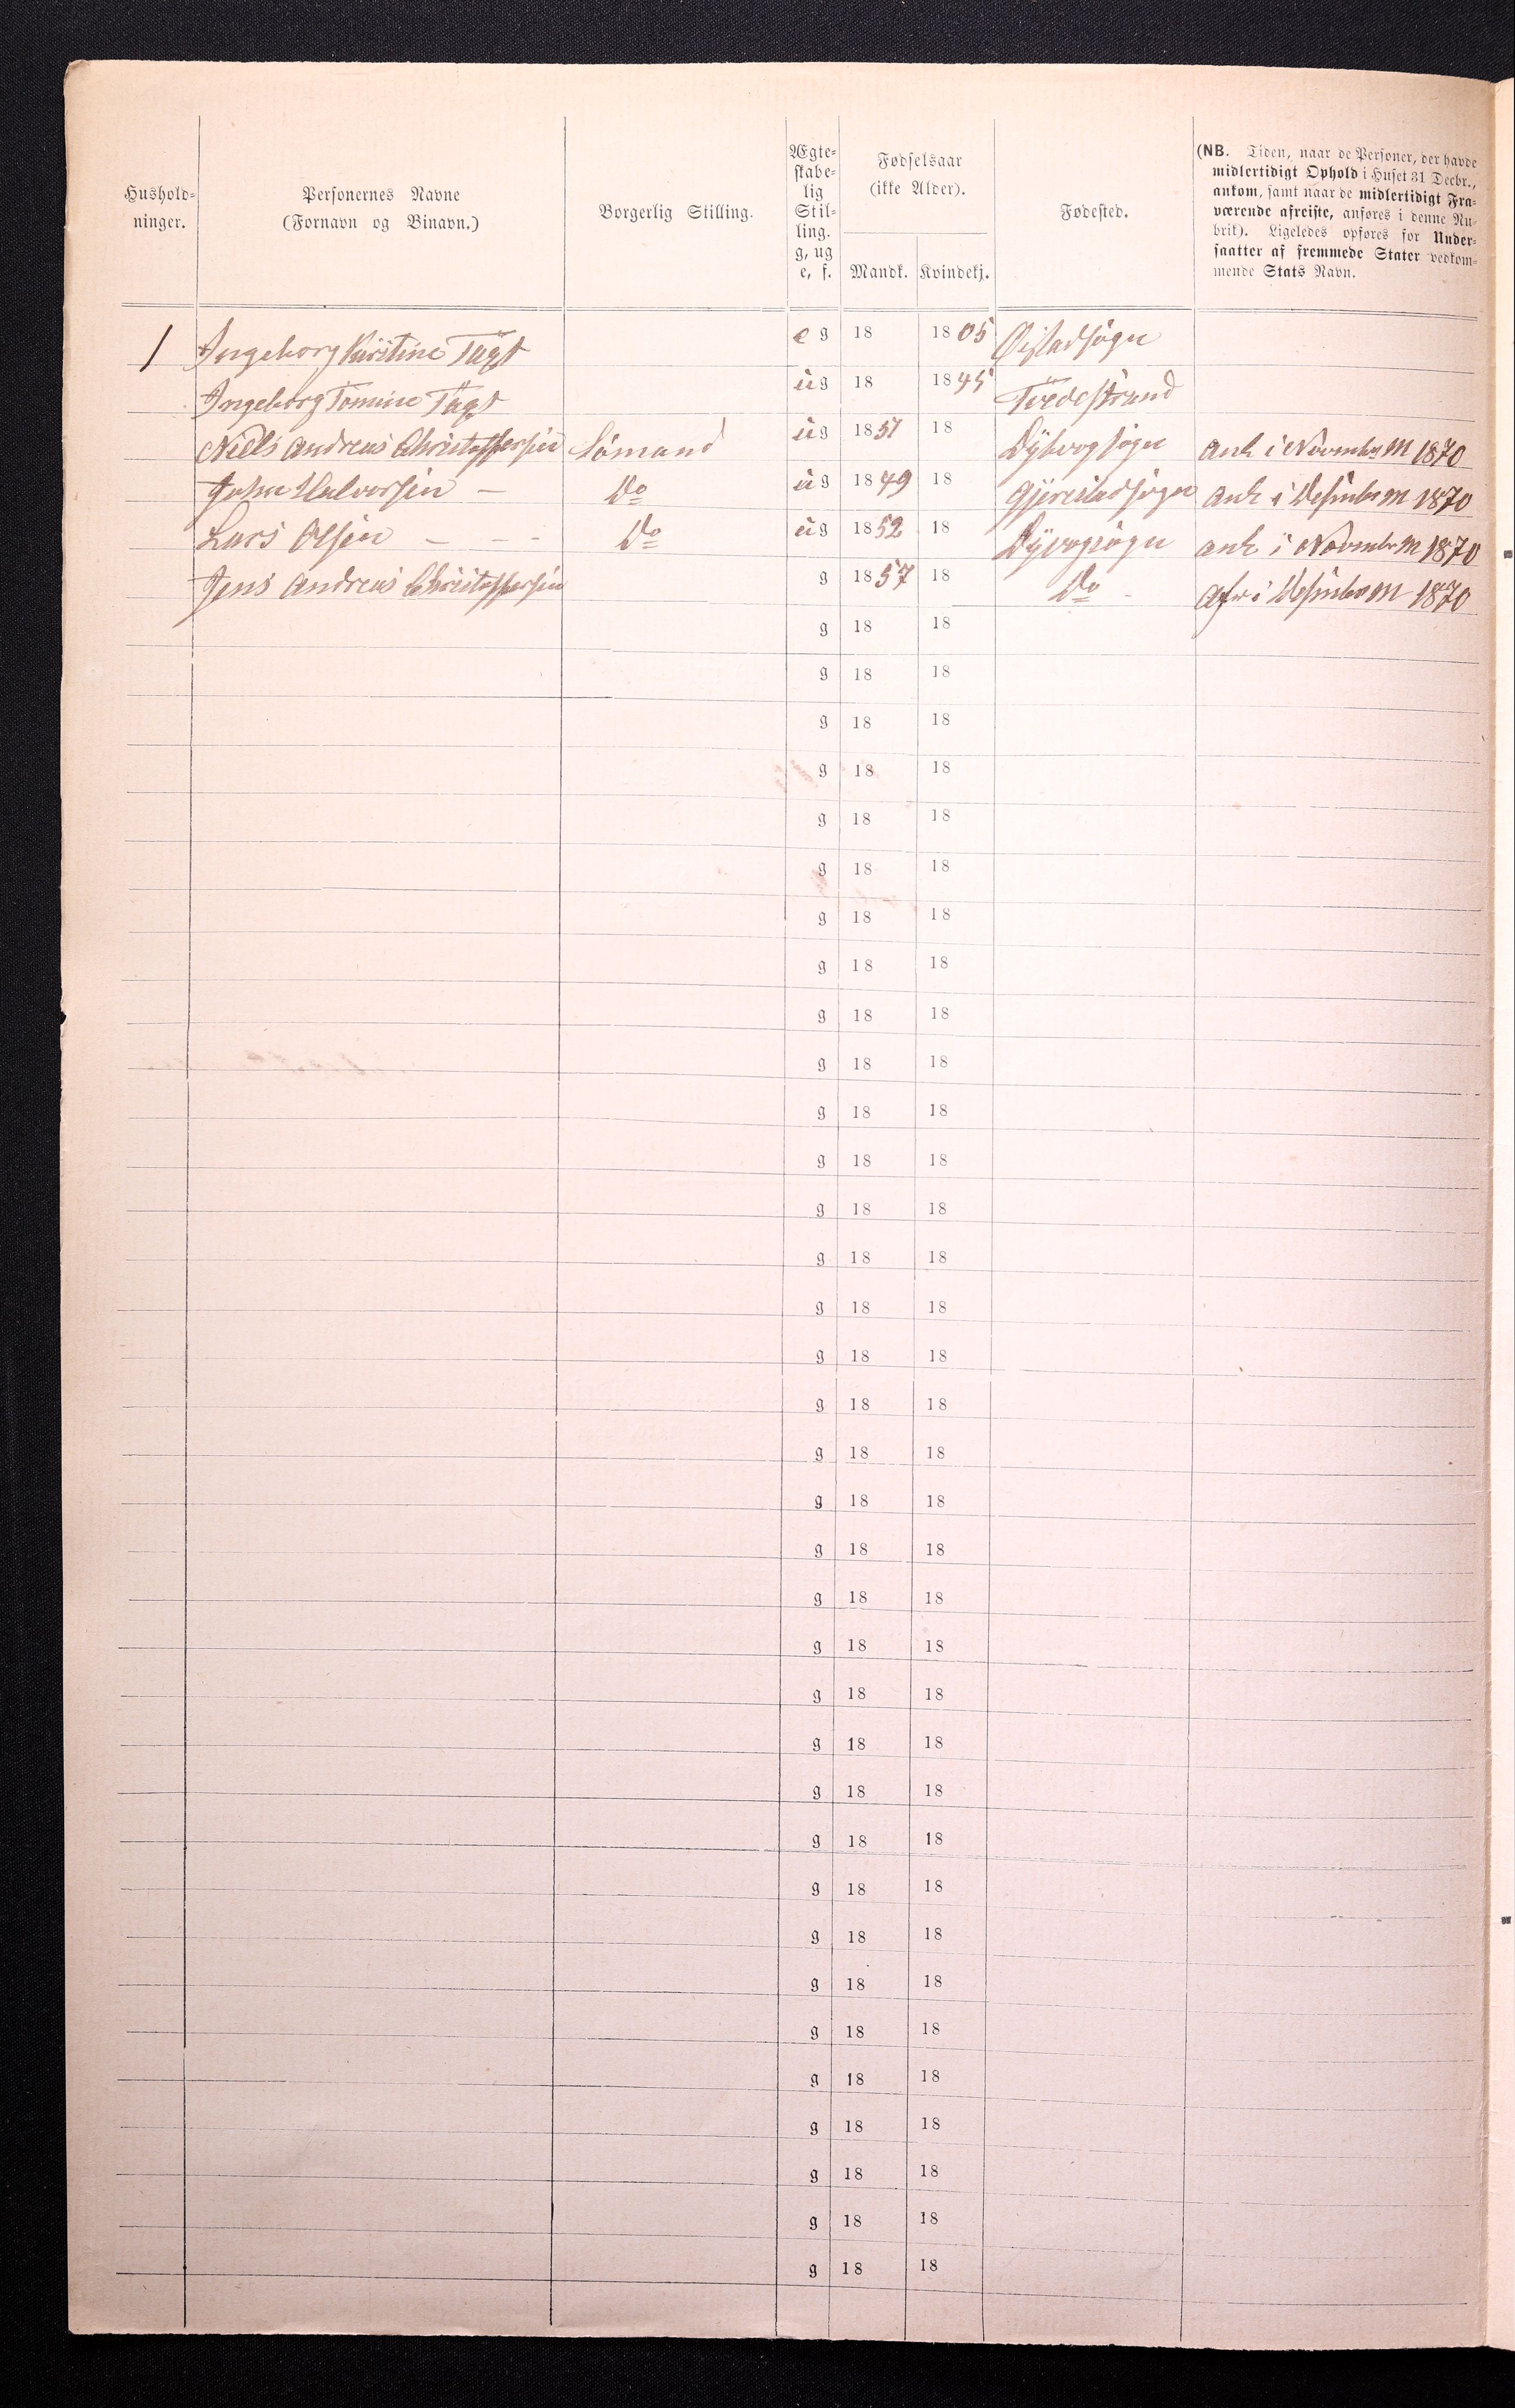 Hushold-
ninger.
Personernes Navne
(Fornavn og Binavn.)
Borgerlig Stilling.
Ægte-
skabe-
lig
Stil-
ling.
g, ug
e, f.
Fødselsaar
(ikke Alder).
Mandk. Kvindekj.
Fødested.
(NB. Tiden, naar de Personer, der havde
midlertidigt Ophold i Huset 31 Decbr.,
ankom, samt naar de midlertidigt Fra-
værende afreiste, anføres i denne Ru-
brik). Ligeledes opføres for Under-
saatter af fremmede Stater vedkom-
mende Stats Navn.
1 Ingeborg Kirstine e g 18 1805 Øistadsogn
Ingeborg Tomine ug 18 1845 Tvedestrand
Niels Andreas Christoffersen Sömand ug 1851 18 ank i November M 1870
John Halvorsen — Do ug 1849 18 Gjerestadsogn ank i Desember M 1870
Lars Olsen — — - Do ug 1852 18 Dyvogsogn ank i November M 1870
Jens Andreas Christoffersen g 1857 18 Do - Afr i Desember M 1870
g 18 18
g 18 18
g 18 18
g 18 18
g 18 18
g 18 18
g 18 18
g 18 18
g 18 18
g 18 18
g 18 18
g 18 18
g 18 18
g 18 18
g 18 18
g 18 18
g 18 18
g 18 18
g 18 18
g 18 18
g 18 18
g 18 18
g 18 18
g 18 18
g 18 18
g 18 18
g 18 18
g 18 18
g 18 18
g 18 18
g 18 18
g 18 18
g 18 18
g 18 18
g 18 18